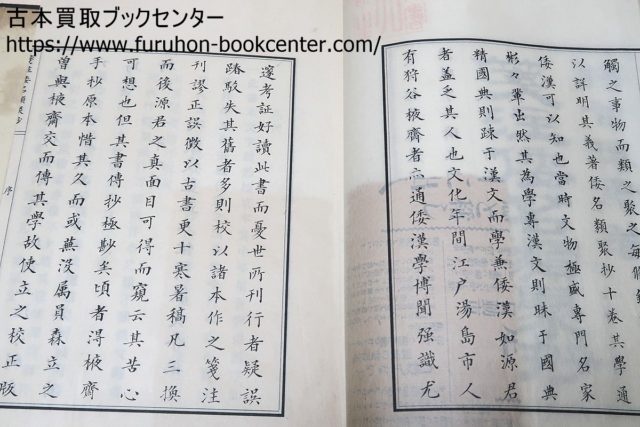 古本買取ブックセンター
https://www.furuhon-bookcenter.com/
觸之事物而類之聚之每
以詳明其義著倭名類聚抄十卷其學通
倭漢可以知也當時文物極盛專門名家
彬々輩出然其為學專漢文則昧于國典
精國典則踈于漢文而學兼倭漢如源君
者蓋乏其人也文化年間江戶湯島市人
有狩谷棭齋者亦通倭漢學博聞强識尤
邃考証好讀此書而憂世所刊行者疑誤
踳駁失其舊者多則校以諸本作之箋注
刊謬正誤徵以古書更十寒暑稿凡三換
而後源君之真面目可得而窺云其苦心
可想也但其書傳抄極尠矣頃者淂棭齋
手抄原本惜其久而或蕪沒属員森立之
曽與棭齋交而傳其學故使立之校正版
序